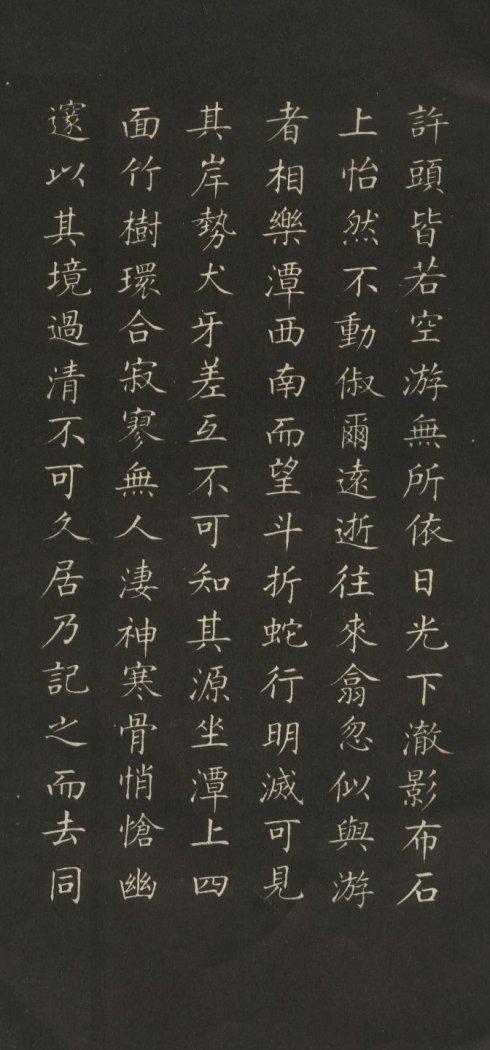 許頭皆若空游無所依日光下澈影布石
上怡然不動俶爾遠逝往來翕忽似與游
者相樂潭西南而望斗折蛇行明滅可見
其岸勢犬牙差互不可知其源坐潭上四
面竹樹環合寂寥無人淒神寒骨悄愴幽
邃以其境過清不可久居乃記之而去同